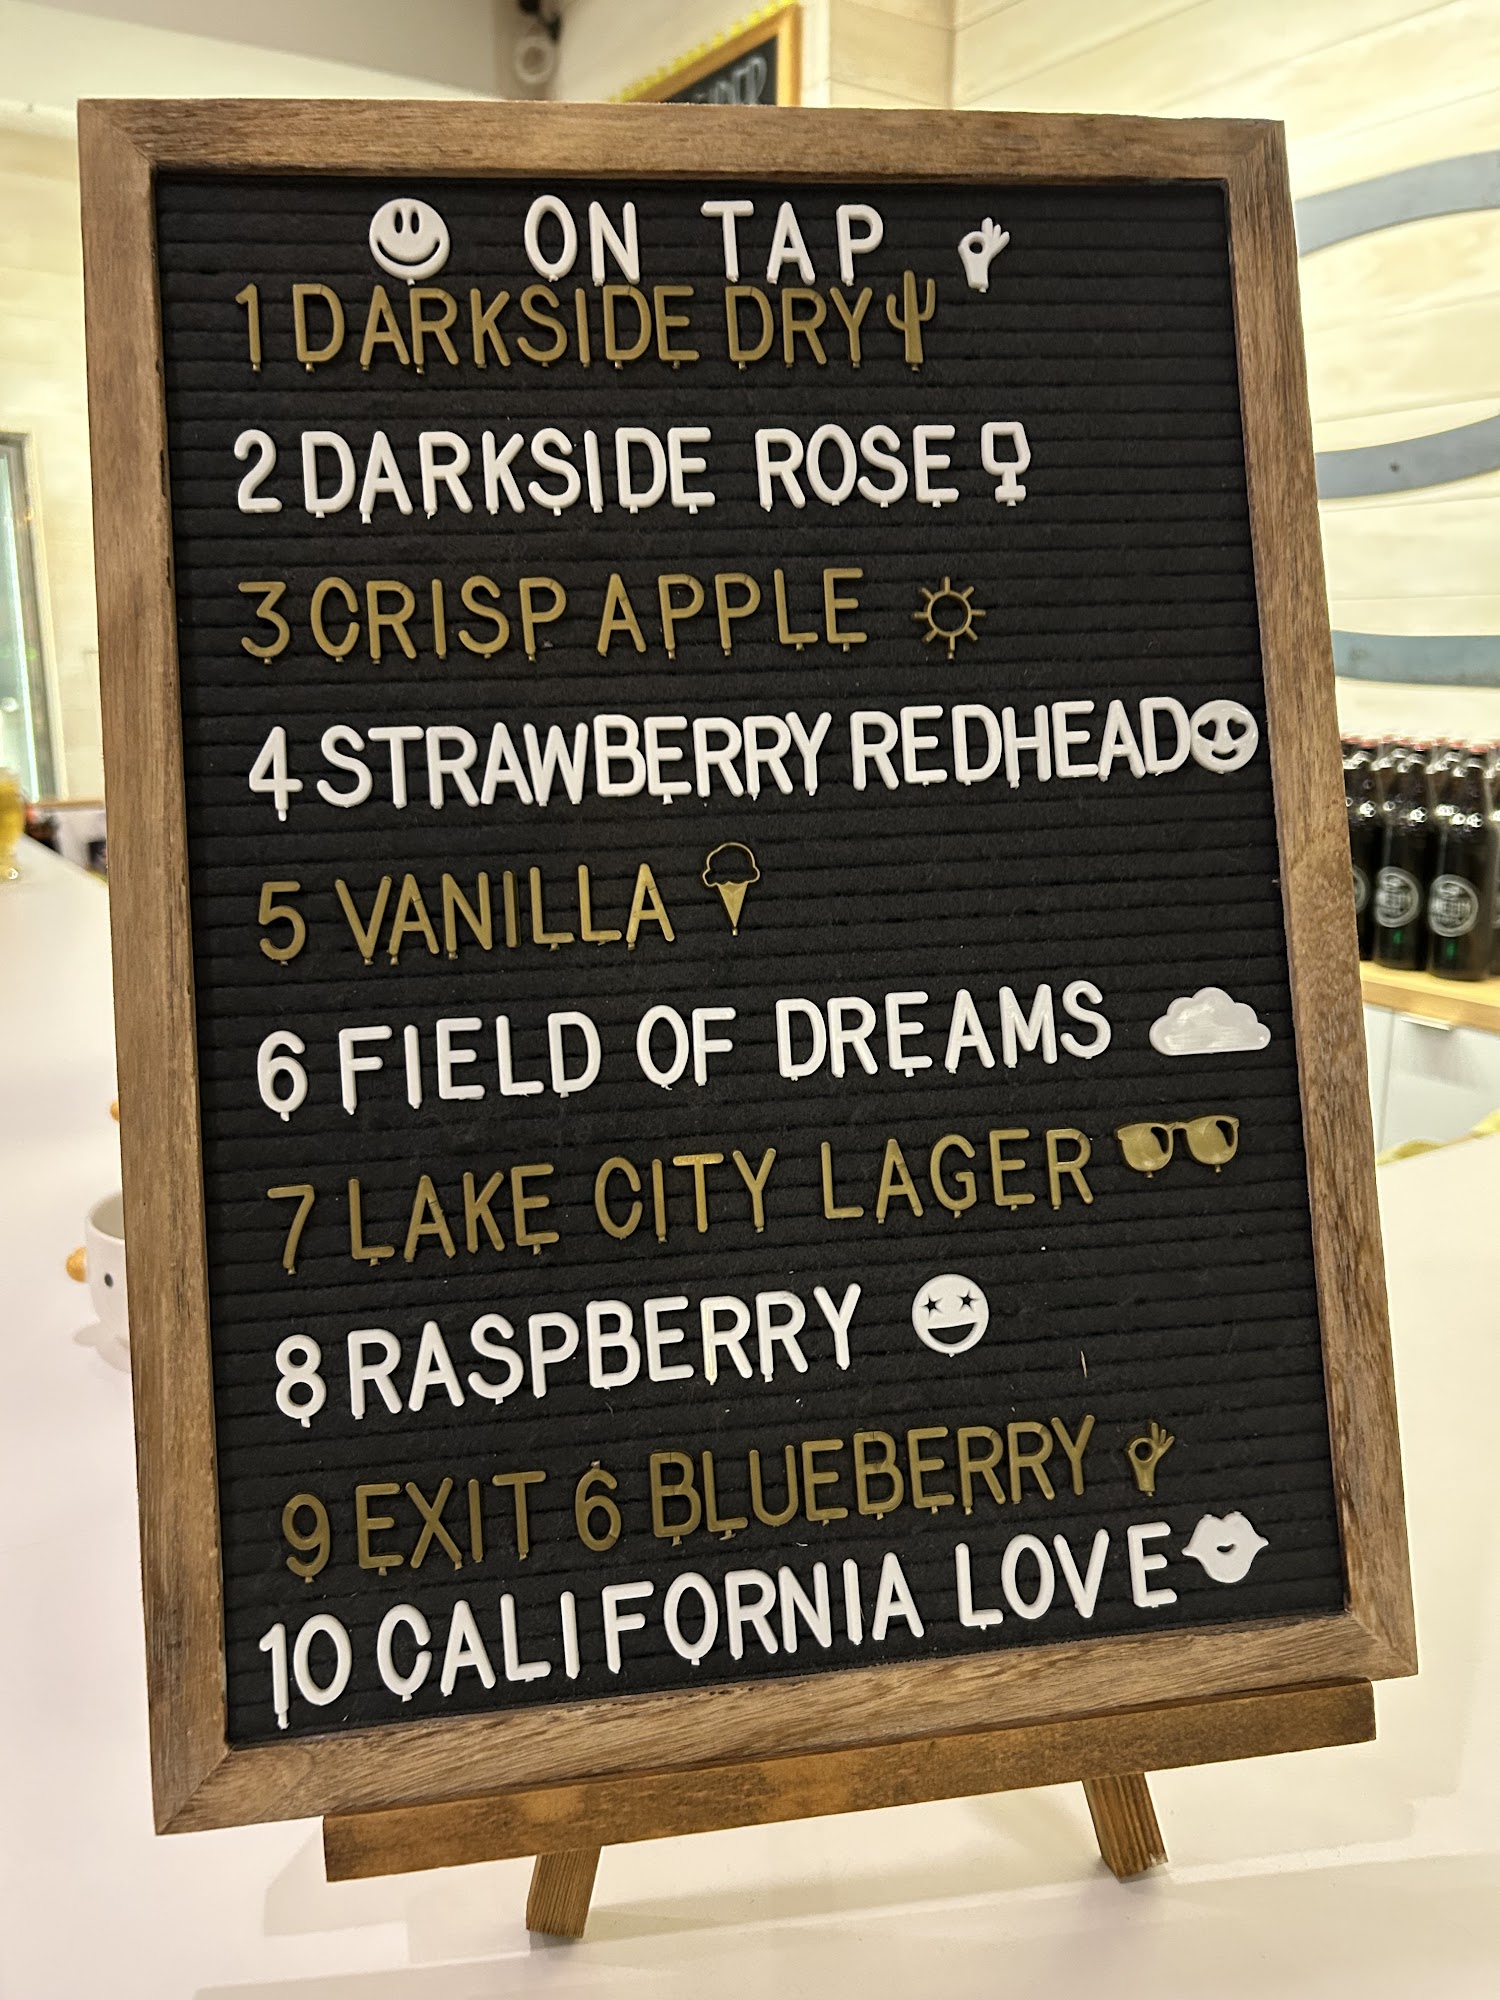 ON TAP
1 DARKSIDE DRY
2 DARKSIDE ROSE
3 CRISP APPLE
4 STRAWBERRY REDHEAD
5 VANILLA
6 FIELD OF DREAMS
7 LAKE CITY LAGER
8 RASPBERRY
9 EXIT 6 BLUEBERRY
10 CALIFORNIA LOVE